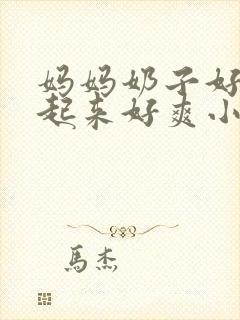 妈妈奶子好
起来好爽小
馬杰